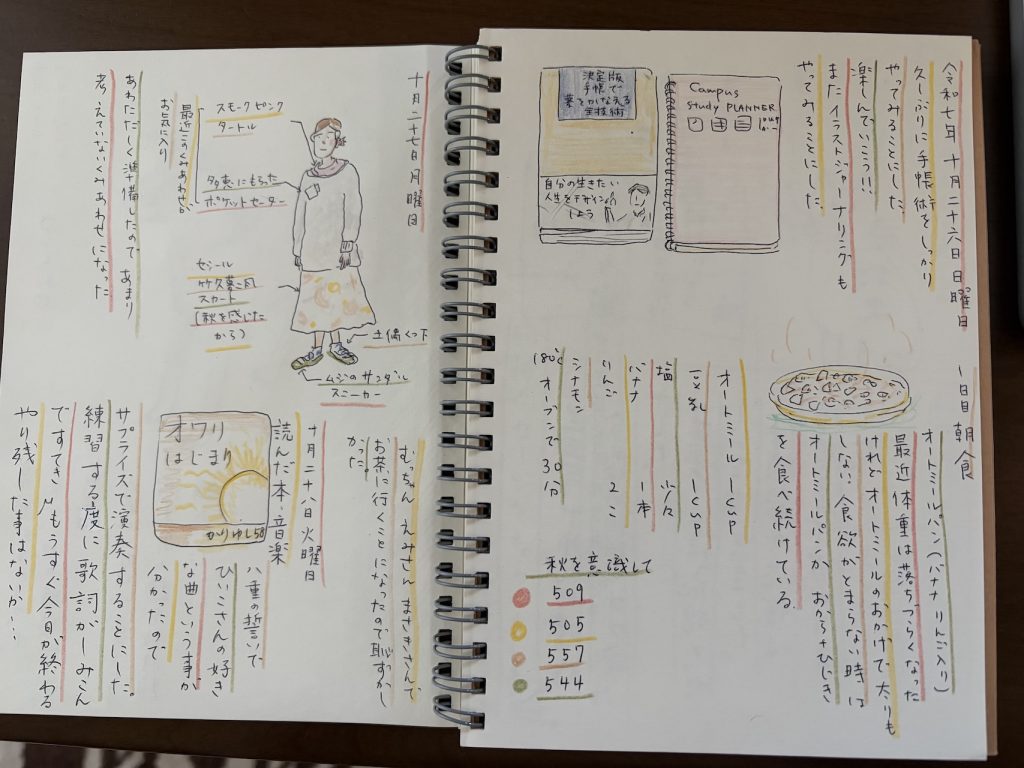 令和七年 十月二十六日 日曜日
久しぶりに手帳術をしっかり
やってみることにした。
楽しんでいこう!!
またイラストジャーナリングも
やってみることにした
Campus
Study PLANNER
決定版
手帳で
夢をかなえる
全技術
自分の生きたい
人生をデザイン
しよう
1日目 朝食
オートミールパン(バナナ りんご入り)
最近体重は落ちづらくなった
けれどオートミールのおかげで太りも
しない。食欲がとまらない時は
オートミールパンか おから+ひじき
を食べ続けている。
オートミール 1cup
豆乳 1cup
塩 少々
バナナ 1本
りんご 2こ
シナモン
180℃ オーブンで 30分
秋を意識して
509
505
557
544
十月二十七日 月曜日
スモークピンク
タートル
最近このくみあわせが
お気に入り
多恵にもらった
ポケットセーター
セシール
竹久夢二風
スカート
(秋を感じた
から)
土偶くつ下
ムジのサンダル
スニーカー
あわただしく準備したので あまり
考えていないくみあわせになった
むっちゃん えみさん まさきさんで
お茶に行くことになったので恥ずかし
かった。
十月二十八日 火曜日
読んだ本・音楽
オワリ
はじまり
かりゆし58
八重の誓いで
ひいこさんの好き
な曲という事が
分かったので
サプライズで演奏することにした。
練習する度に歌詞がしみこん
ですてき♪もうすぐ今日が終わる
やり残した事はないか…